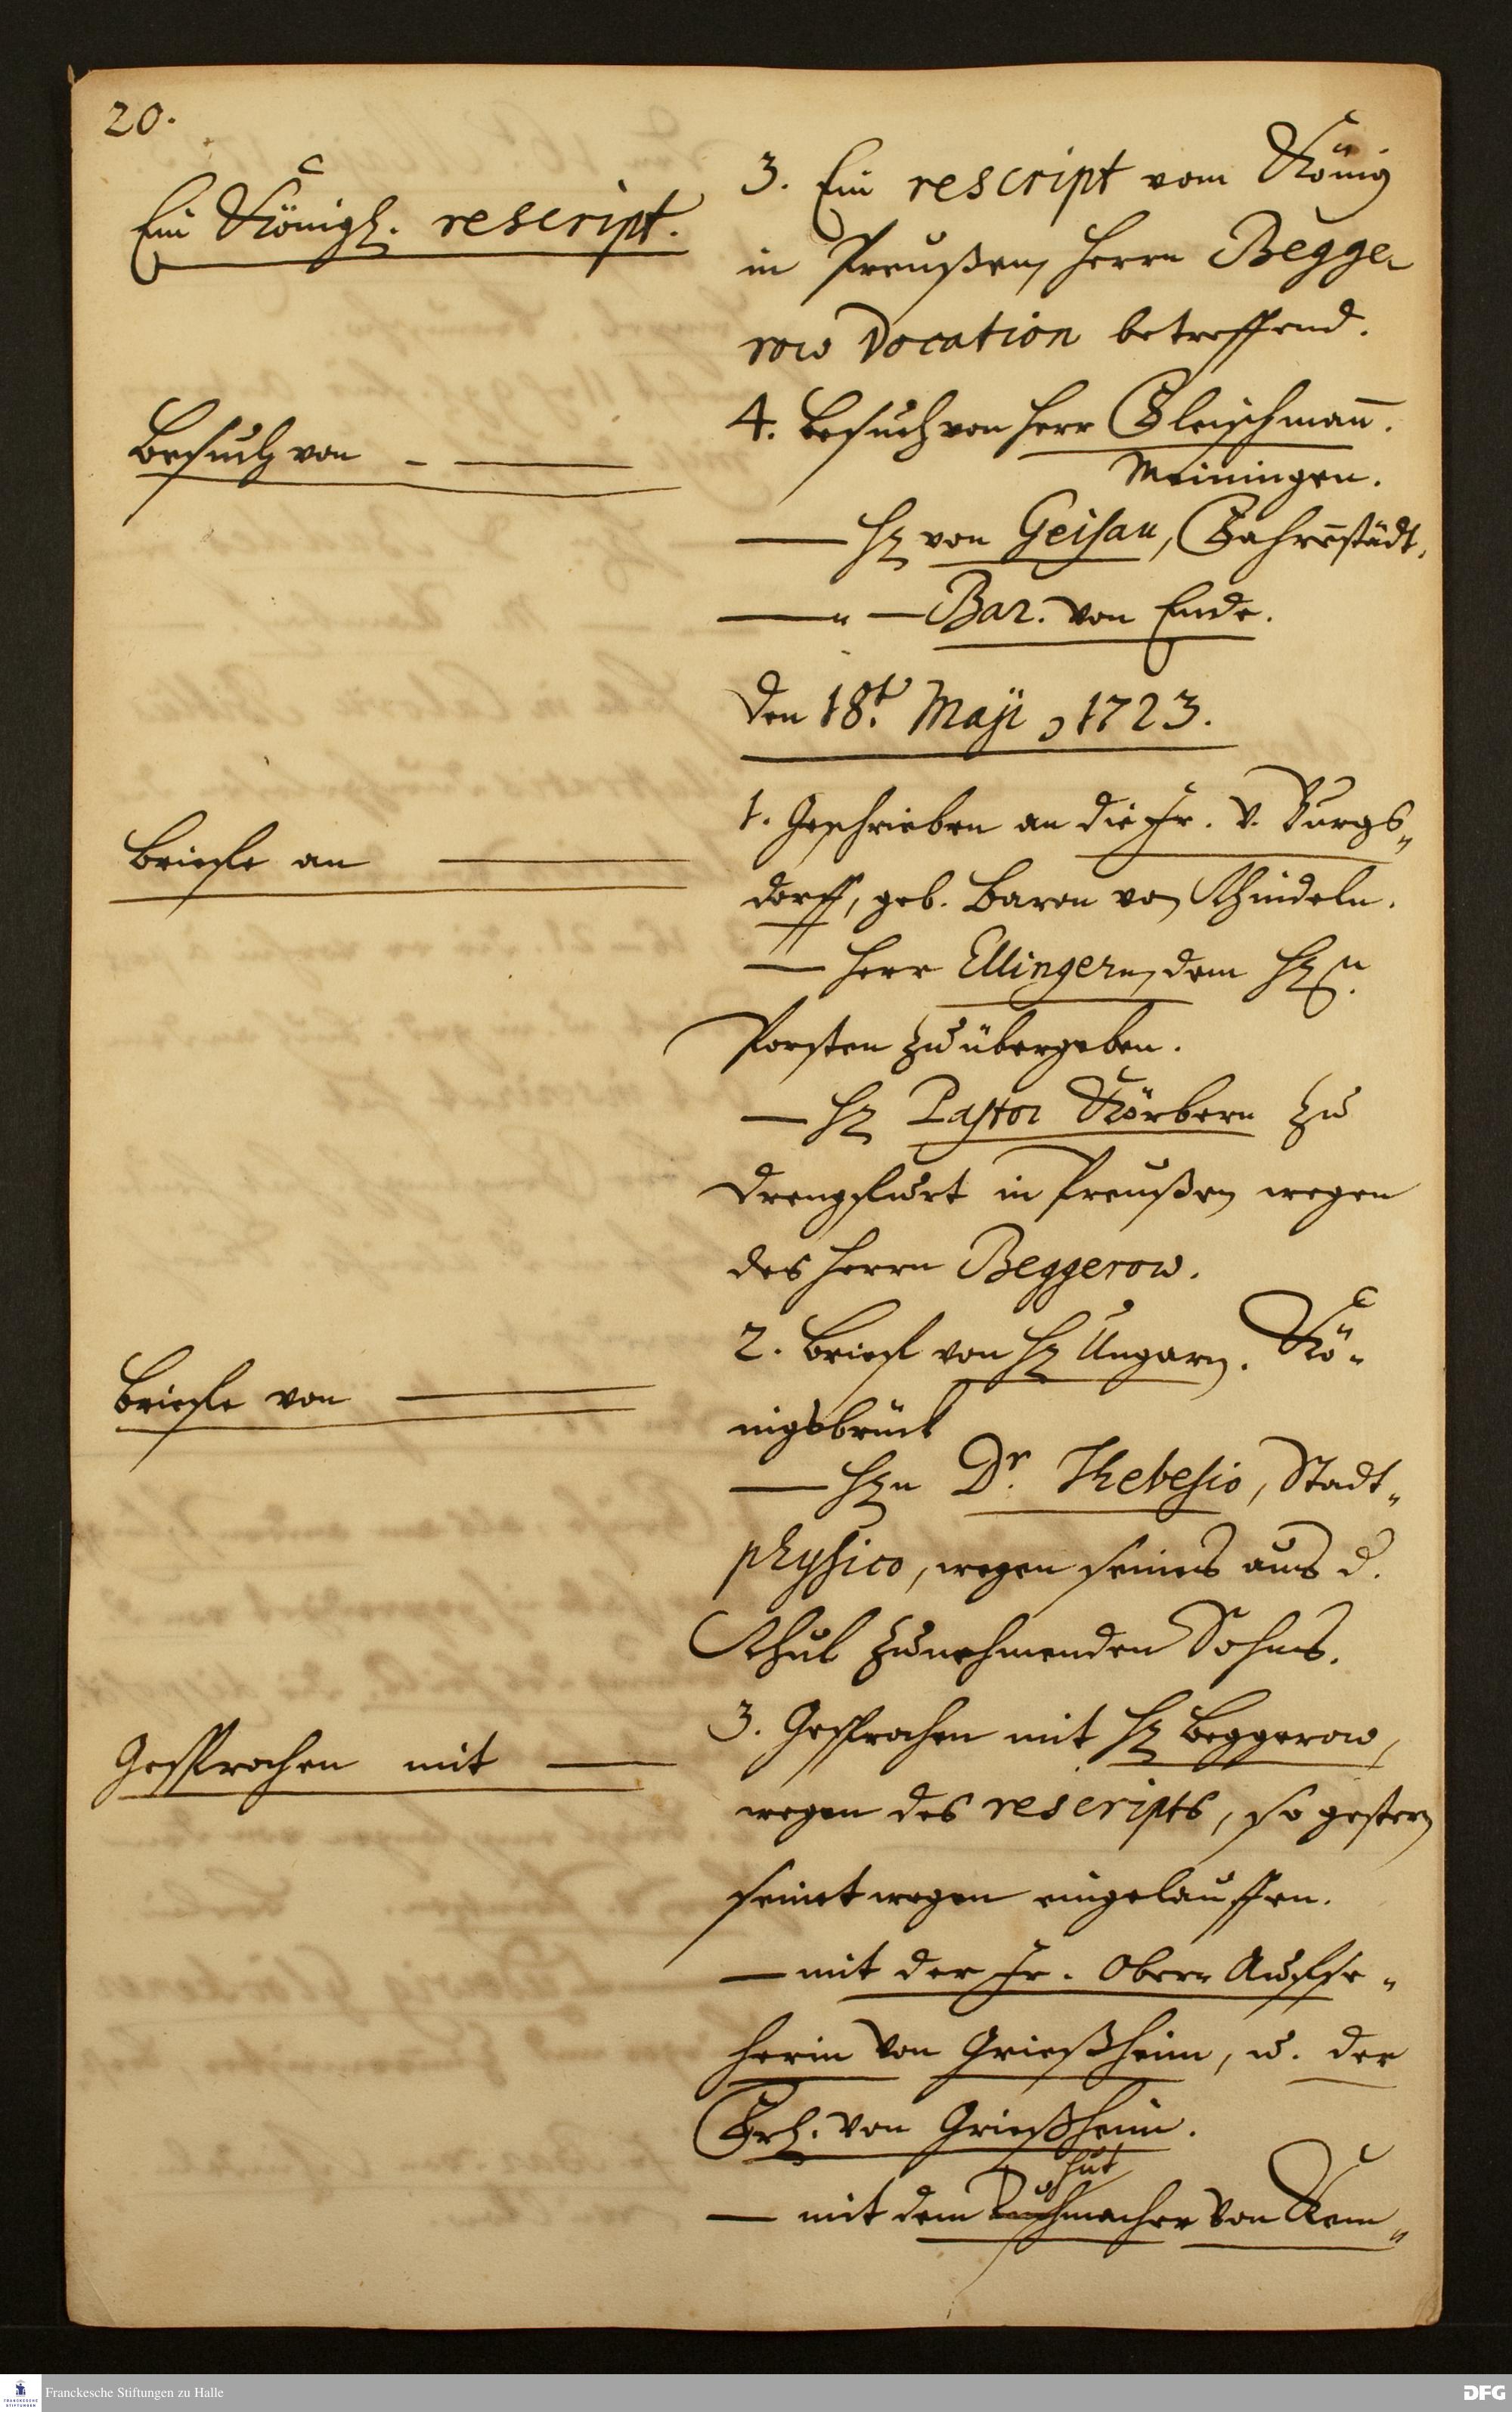 20.
Ein Königl. rescript.
3. Ein rescript vom König
in Preußen, Herrn Begge-
row Vocation betreffend.
Besuch von - —
4. Besuch von Herr Fleischman̄.
Meiningen.
— H. von Geisau, Fahrnstädt,
— " — Bar. von Ende.
Den 18t. Maji, 1723.
Briefe an —
1. Geschrieben an die Fr. v. Burgs„
dorff, geb. Baron von Schindeln.
— Herr Ellingern, dem H.n
Porsten zu übergeben.
— H. Pastor Körbern zu
Drengfurt in Preußen wegen
des Herrn Beggerow.
Briefe von —
2. Brief von H. Ungarn. Kö-
nigsbrück
— H.n Dr. Thebesio, Stadt„
physico, wegen seines aus d.
Schul zunehmenden Sohns.
Gesprochen mit —
3. Gesprochen mit H. Beggerow,
wegen des rescripts, so gestern
seinetwegen eingelauffen.
— mit der Fr. Ober Auffse„
herin von Grießheim, u. der
Frl. von Grießheim.
hut
— mit dem Tuchmacher von Kem„
Franckesche Stiftungen zu Halle
DFG